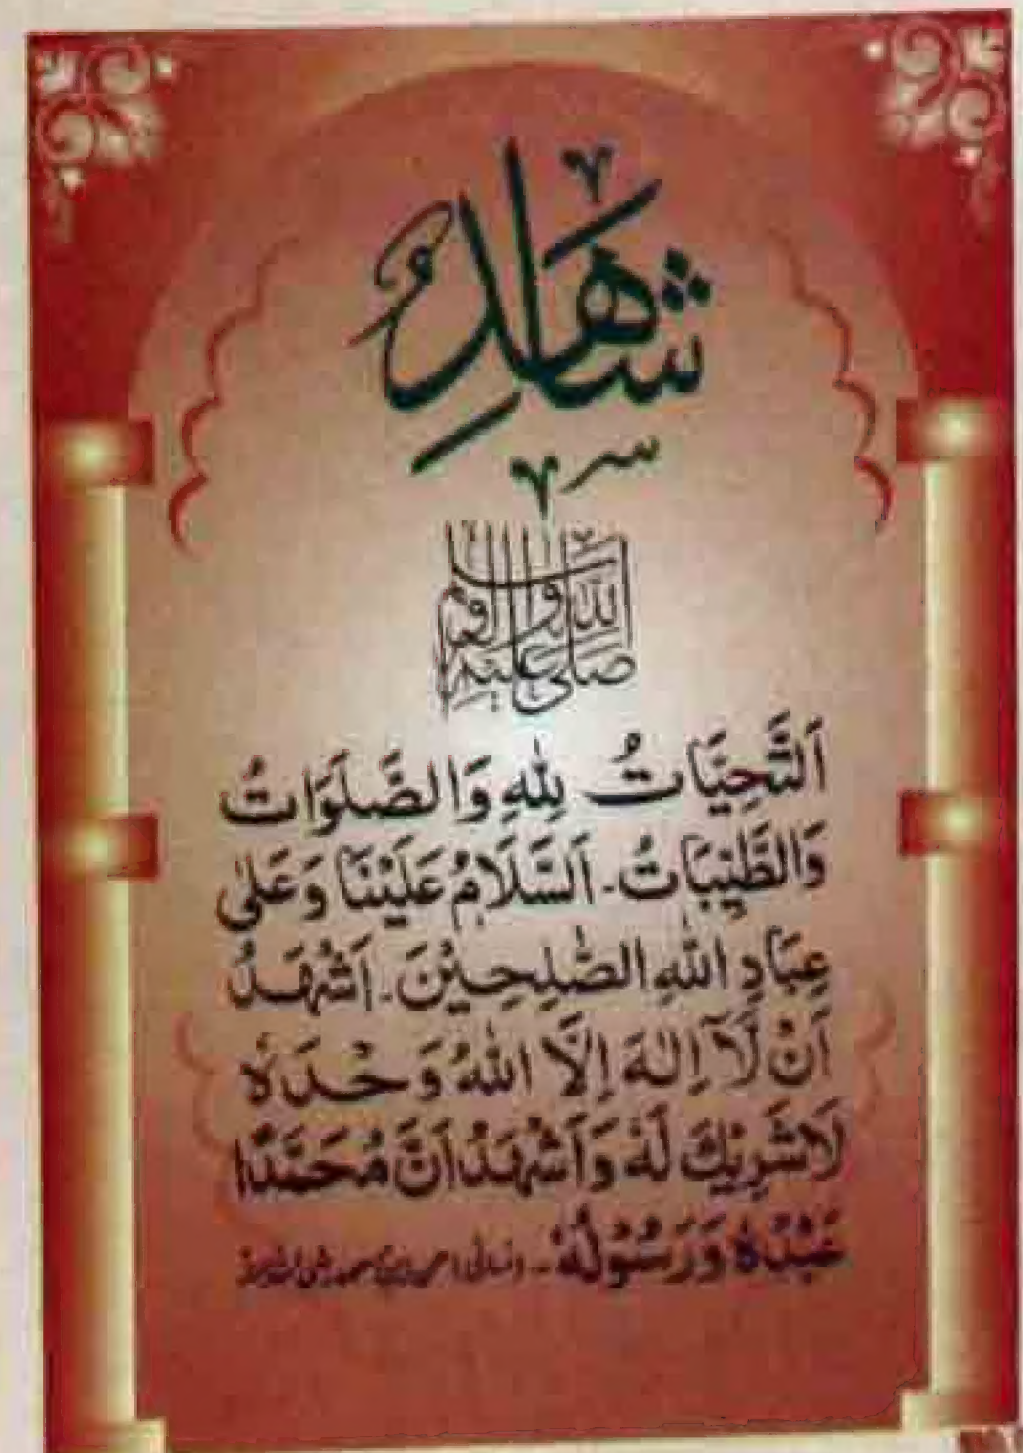 شَاهِدٌ
صَلَّى اللهُ عَلَيْهِ وَآلِهِ وَسَلَّمَ
اَلتَّحِيَّاتُ لِلّٰهِ وَالصَّلَوَاتُ
وَالطَّيِّبَاتُ۔ اَلسَّلَامُ عَلَيْنَا وَعَلٰى
عِبَادِ اللّٰهِ الصّٰلِحِيْنَ۔ اَشْهَدُ
اَنْ لَّآ اِلٰهَ اِلَّا اللّٰهُ وَحْدَهٗ
لَاشَرِيْكَ لَهٗ وَاَشْهَدُ اَنَّ مُحَمَّدًا
عَبْدُهٗ وَرَسُوْلُهٗ۔